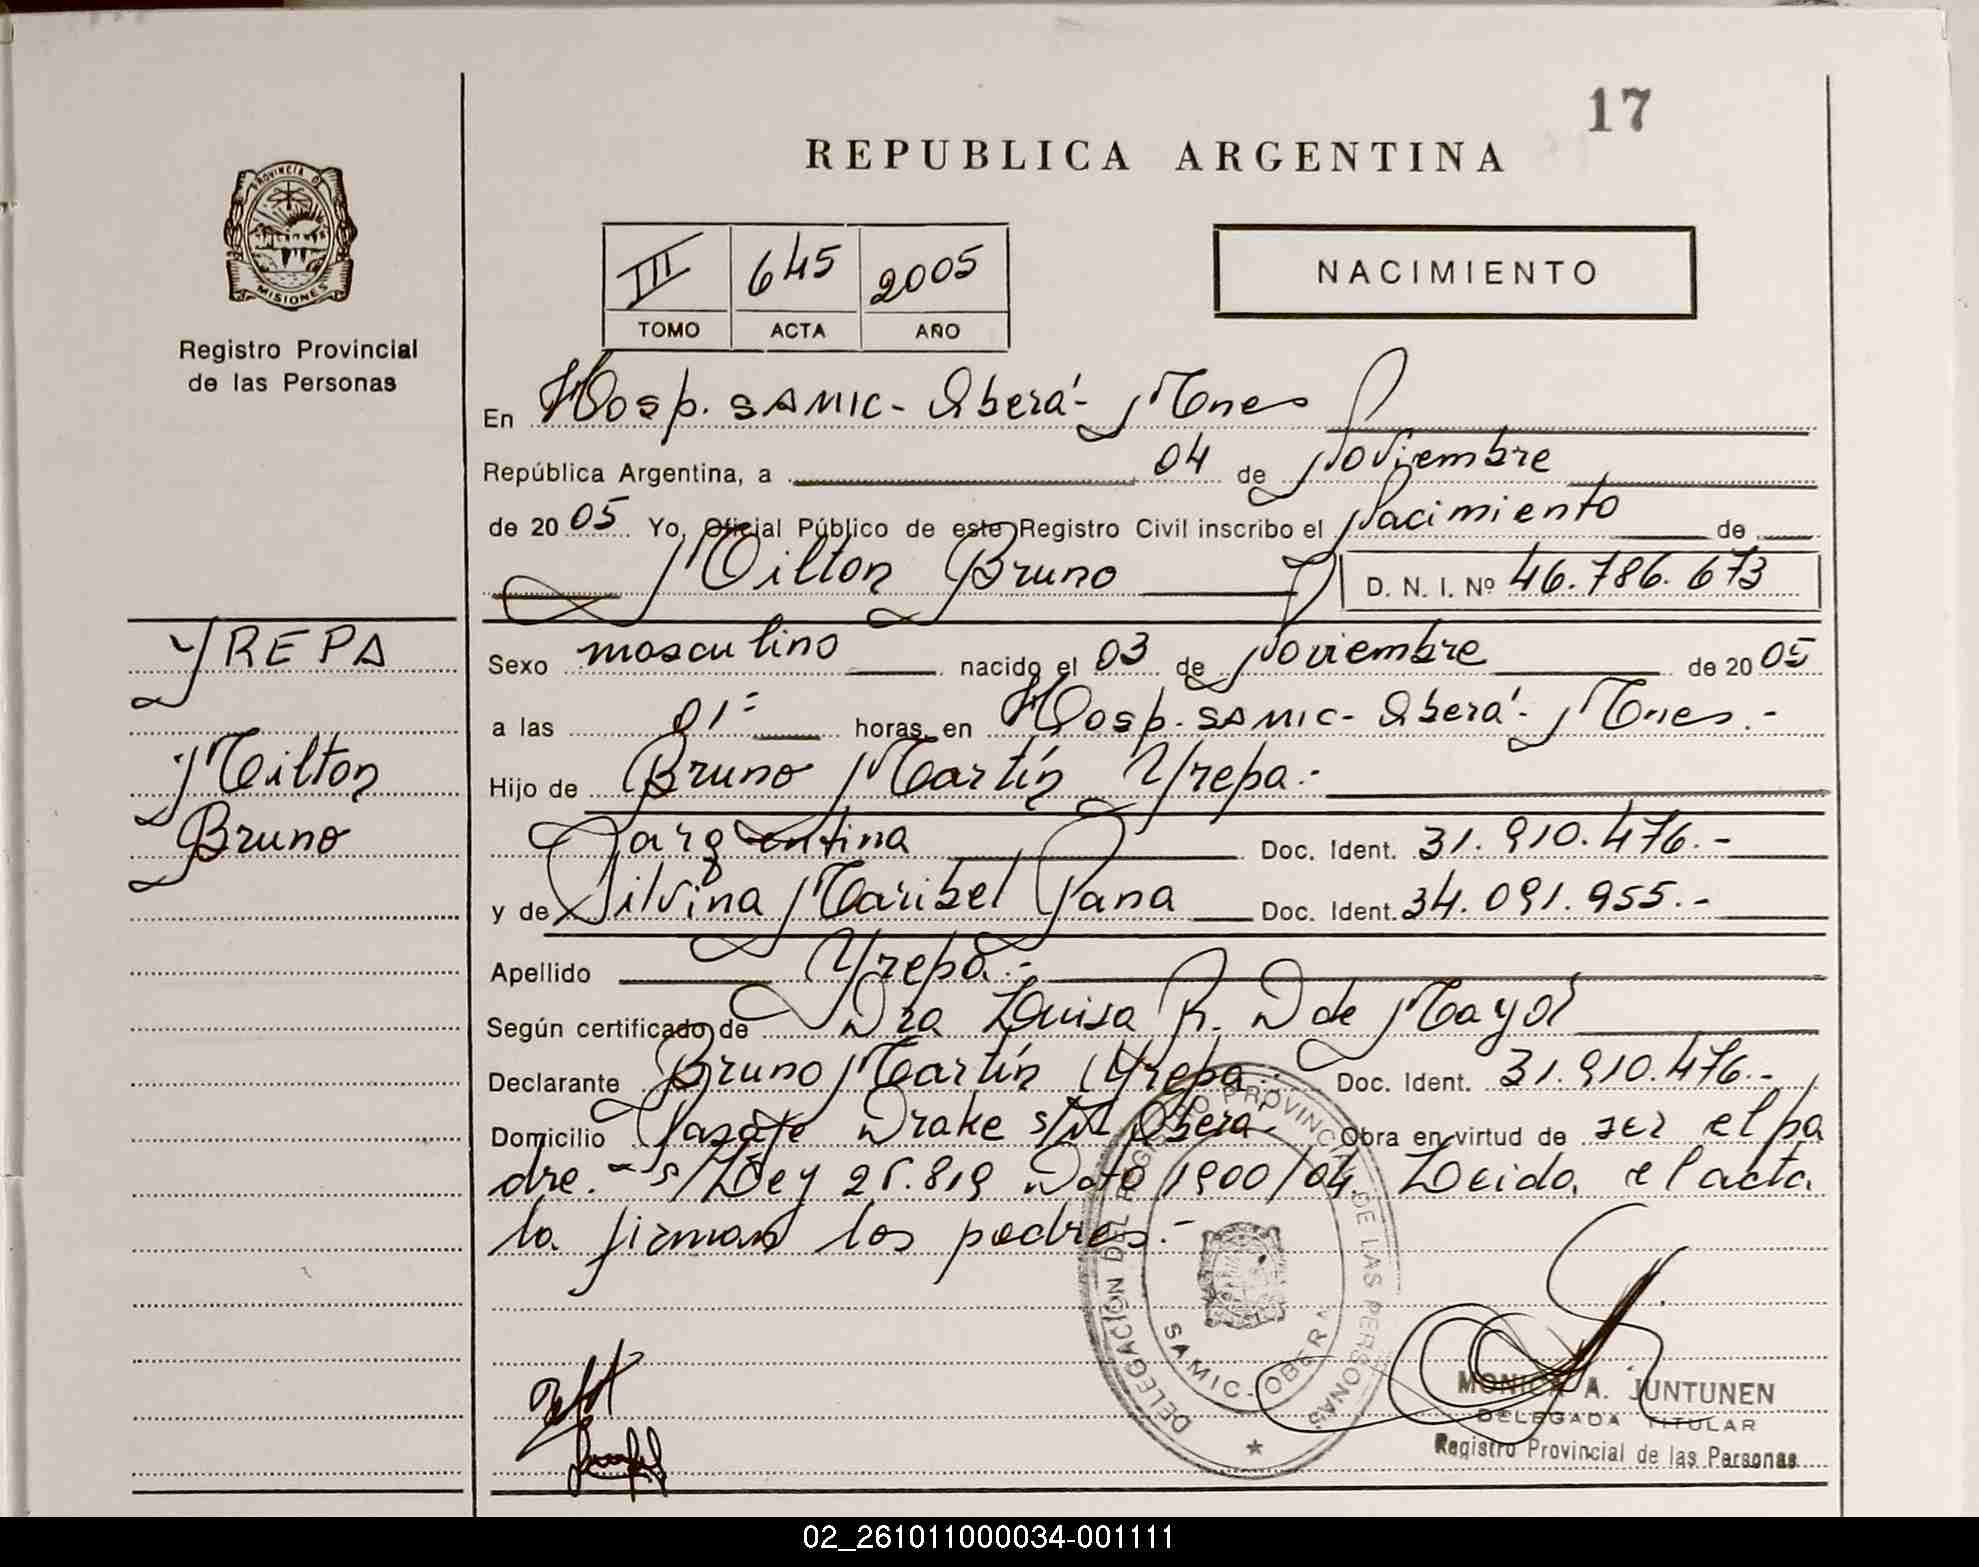 17
REPUBLICA ARGENTINA
PROVINCIA D
MISIONES
Registro Provincial
de las Personas
III 645 2005
TOMO ACTA AÑO
NACIMIENTO
En Hosp. SAMIC- Oberá- Mnes
República Argentina, a 04 de Noviembre
de 2005 Yo, Oficial Público de este Registro Civil inscribo el Nacimiento de
Milton Bruno D. N. I. Nº 46.786.673
YREPA
Milton
Bruno
Sexo masculino nacido el 03 de Noviembre de 2005
a las 01= horas, en Hosp. SAMIC- Oberá- Mnes.-
Hijo de Bruno Martín Yrepa.-
argentina Doc. Ident. 31.910.476.-
y de Silvina Maribel Pana Doc. Ident. 34.091.955.-
Apellido Yrepa.-
Según certificado de Dra Luisa R. D de Mayol
Declarante Bruno Martín Yrepa.- Doc. Ident. 31.910.476.-
Domicilio Pasaje Drake s/N Oberá. Obra en virtud de ser el pa
dre.- s/Ley 25.819 Dto 1900/04. Leida el acta
la firman los padres.-
DELEGACIÓN DEL REGISTRO PROVINCIAL DE LAS PERSONAS
SAMIC-OBERA
MONICA A. JUNTUNEN
DELEGADA TITULAR
Registro Provincial de las Personas
02_261011000034-001111